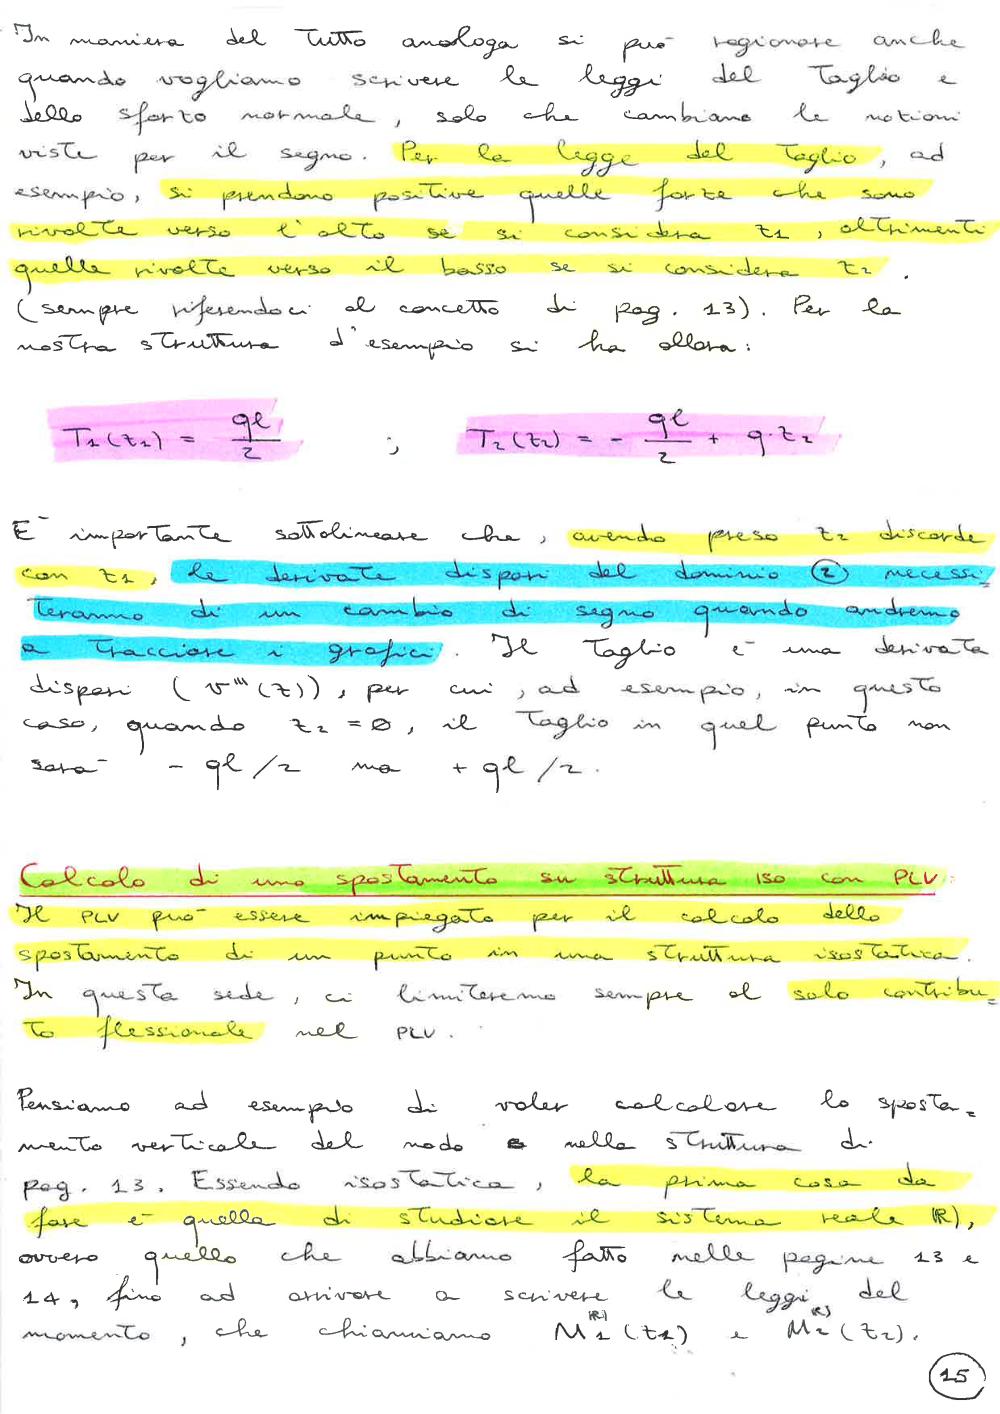 In maniera del tutto analoga si può ragionare anche
quando vogliamo scrivere le leggi del taglio e
dello sforzo normale, solo che cambiano le nozioni
viste per il segno. Per la legge del taglio, ad
esempio, si prendono positive quelle forze che sono
rivolte verso l'alto se si considera z1, altrimenti
quelle rivolte verso il basso se si considera z2.
(sempre riferendoci al concetto di pag. 13). Per la
nostra struttura d'esempio si ha allora:
T1(z1) = ql/2 ; T2(z2) = - ql/2 + q·z2
E' importante sottolineare che, avendo preso z2 discorde
con z1, le derivate dispari del dominio ② necessi=
teranno di un cambio di segno quando andremo
a tracciare i grafici. Il taglio è una derivata
dispari (v'''(z)), per cui, ad esempio, in questo
caso, quando z2 = 0, il taglio in quel punto non
sarà - ql/2 ma + ql/2.
Calcolo di uno spostamento su struttura iso con PLV:
Il PLV può essere impiegato per il calcolo dello
spostamento di un punto in una struttura isostatica.
In questa sede, ci limiteremo sempre al solo contribu=
to flessionale nel PLV.
Pensiamo ad esempio di voler calcolare lo sposta=
mento verticale del nodo nella struttura di
pag. 13. Essendo isostatica, la prima cosa da
fare è quella di studiare il sistema reale (R),
ovvero quello che abbiamo fatto nelle pagine 13 e
14, fino ad arrivare a scrivere le leggi del
momento, che chiamiamo M1(R)(z1) e M2(R)(z2).
15